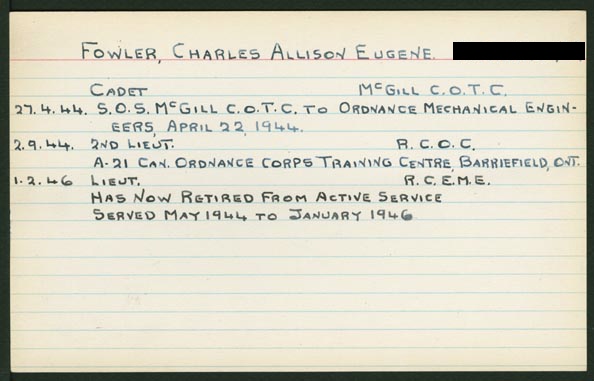 FOWLER, CHARLES ALLISON EUGENE.
CADET McGILL C.O.T.C.
27.4.44. S.O.S. McGILL C.O.T.C. TO ORDNANCE MECHANICAL ENGIN-
EERS, APRIL 22, 1944.
2.9.44. 2ND LIEUT. R.C.O.C.
A-21 CAN. ORDNANCE CORPS TRAINING CENTRE, BARRIEFIELD, ONT.
1.2.46 LIEUT. R.C.E.M.E.
HAS NOW RETIRED FROM ACTIVE SERVICE
SERVED MAY 1944 TO JANUARY 1946